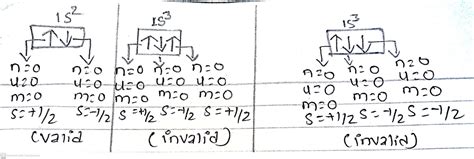 1S² 1S³ 1S³
↑↓ ↑↓↑ ↑↓↓
n=0 n=0 n=0 n=0 n=0 n=0 n=0 n=0
u=0 u=0 u=0 u=0 u=0 u=0 u=0 u=0
m=0 m=0 m=0 m=0 m=0 m=0 m=0 m=0
S=+1/2 S=-1/2 S=+1/2 S=-1/2 S=+1/2 S=+1/2 S=-1/2 S=-1/2
(valid (invalid) (invalid)